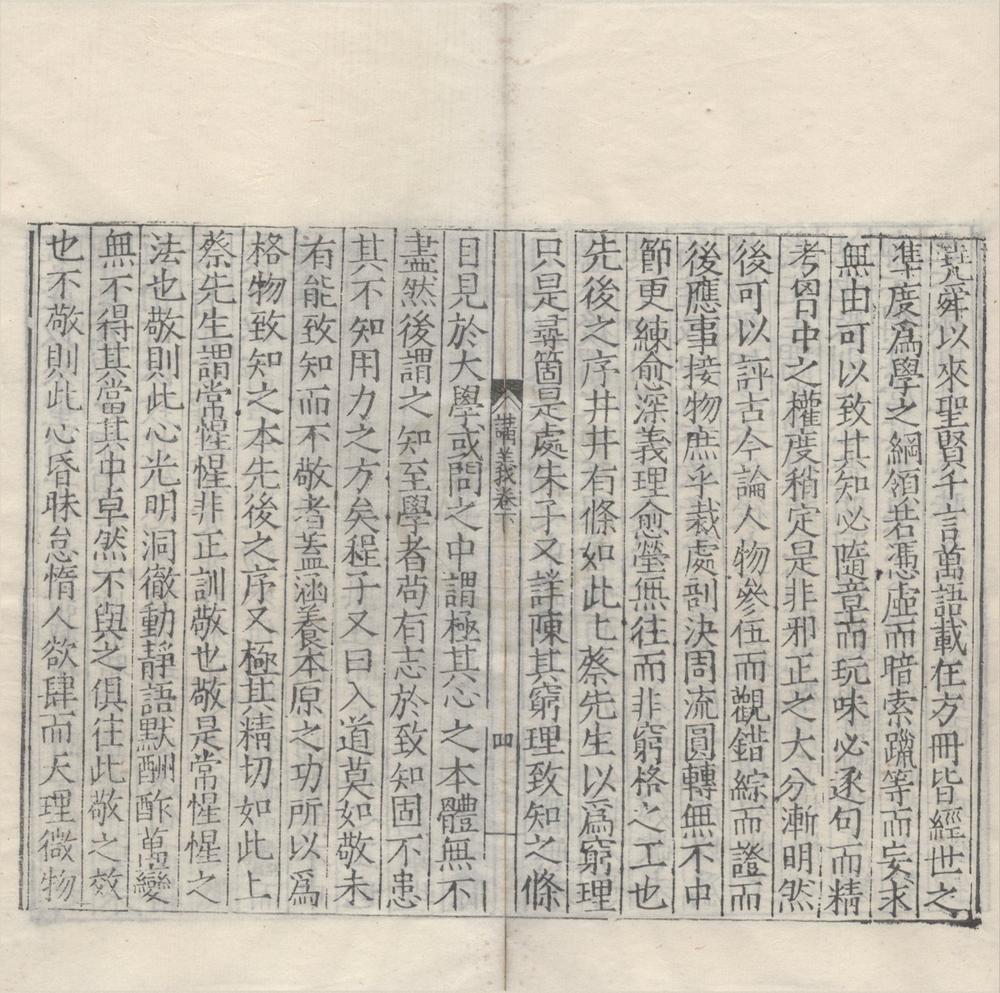 堯舜以來聖賢千言萬語載在方冊皆經世之
準度爲學之綱領若憑虛而暗索躐等而妄求
無由可以致其知必隨章而玩味必逐句而精
考胷中之權度稍定是非邪正之大分漸明然
後可以評古今論人物參伍而觀錯綜而證而
後應事接物庶乎裁處剖決周流圓轉無不中
節更練愈深義理愈瑩無往而非窮格之工也
先後之序井井有條如此上蔡先生以爲窮理
只是尋箇是處朱子又詳陳其窮理致知之條
講義卷下
四
目見於大學或問之中謂極其心之本體無不
盡然後謂之知至學者苟有志於致知固不患
其不知用力之方矣程子又曰入道莫如敬未
有能致知而不敬者蓋涵養本原之功所以爲
格物致知之本先後之序又極其精切如此上
蔡先生謂常惺惺非正訓敬也敬是常惺惺之
法也敬則此心光明洞徹動靜語默酬酢萬變
無不得其當其中卓然不與之俱往此敬之效
也不敬則此心昏昧怠惰人欲肆而天理微物